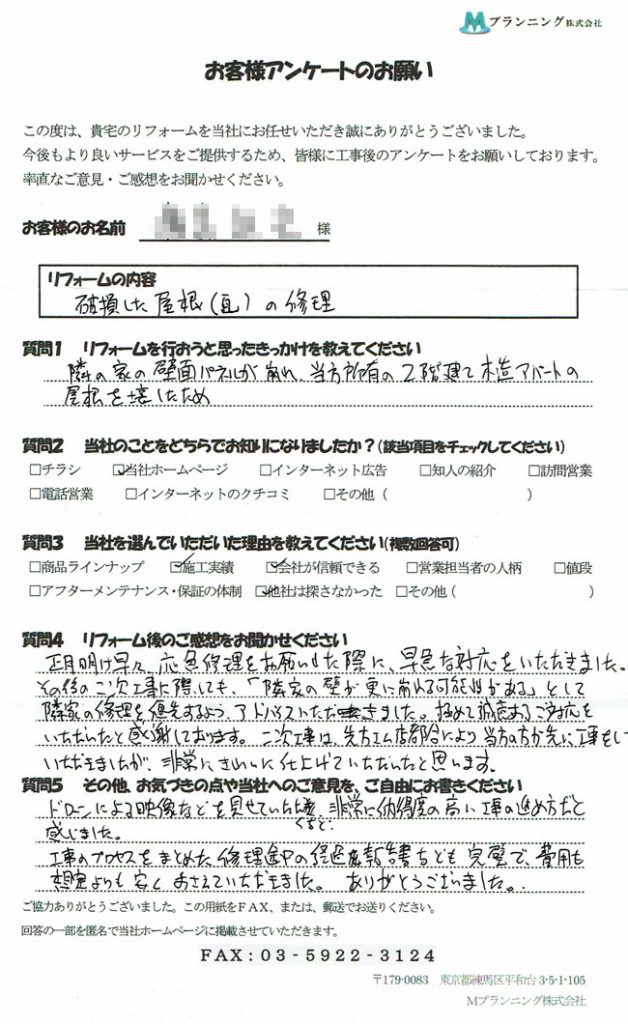 Mプランニング株式会社
お客様アンケートのお願い
この度は、貴宅のリフォームを当社にお任せいただき誠にありがとうございました。
今後もより良いサービスをご提供するため、皆様に工事後のアンケートをお願いしております。
率直なご意見・ご感想をお聞かせください。
お客様のお名前 様
リフォームの内容
破損した屋根(瓦)の修理
質問1 リフォームを行おうと思ったきっかけを教えてください
隣の家の壁面パネルが崩れ、当方所有の2階建て木造アパートの
屋根を壊したため
質問2 当社のことをどちらでお知りになりましたか?(該当項目をチェックしてください)
□チラシ ☑当社ホームページ □インターネット広告 □知人の紹介 □訪問営業
□電話営業 □インターネットのクチコミ □その他( )
質問3 当社を選んでいただいた理由を教えてください(複数回答可)
□商品ラインナップ ☑施工実績 ☑会社が信頼できる □営業担当者の人柄 □値段
□アフターメンテナンス・保証の体制 ☑他社は探さなかった □その他( )
質問4 リフォーム後のご感想をお聞かせください
正月明け早々、応急修理をお願いした際に、早急な対応をいただきました。
その後の二次工事に際しても、「隣家の壁が更に崩れる可能性がある」として
隣家の修理を優先するよう、アドバイスいただきました。極めて誠意あるご対応を
いただいたと感謝しております。二次工事は、先方工ム店都合により当方の方が先に工事をして
いただきましたが、非常にきれいに仕上げていただいたと思います。
質問5 その他、お気づきの点や当社へのご意見を、ご自由にお書きください
ドローンによる映像などを見せていただくなど、非常に納得度の高い工事の進め方だと
感じました。
工事のプロセスをまとめた修理途中の経過報告書なども完璧で、費用も
想定よりも安くおさえていただきました。ありがとうございました。
ご協力ありがとうございました。この用紙をFAX、または、郵送でお送りください。
回答の一部を匿名で当社ホームページに掲載させていただきます。
FAX:03-5922-3124
〒179-0083 東京都練馬区平和台3-5-1-105
Mプランニング株式会社